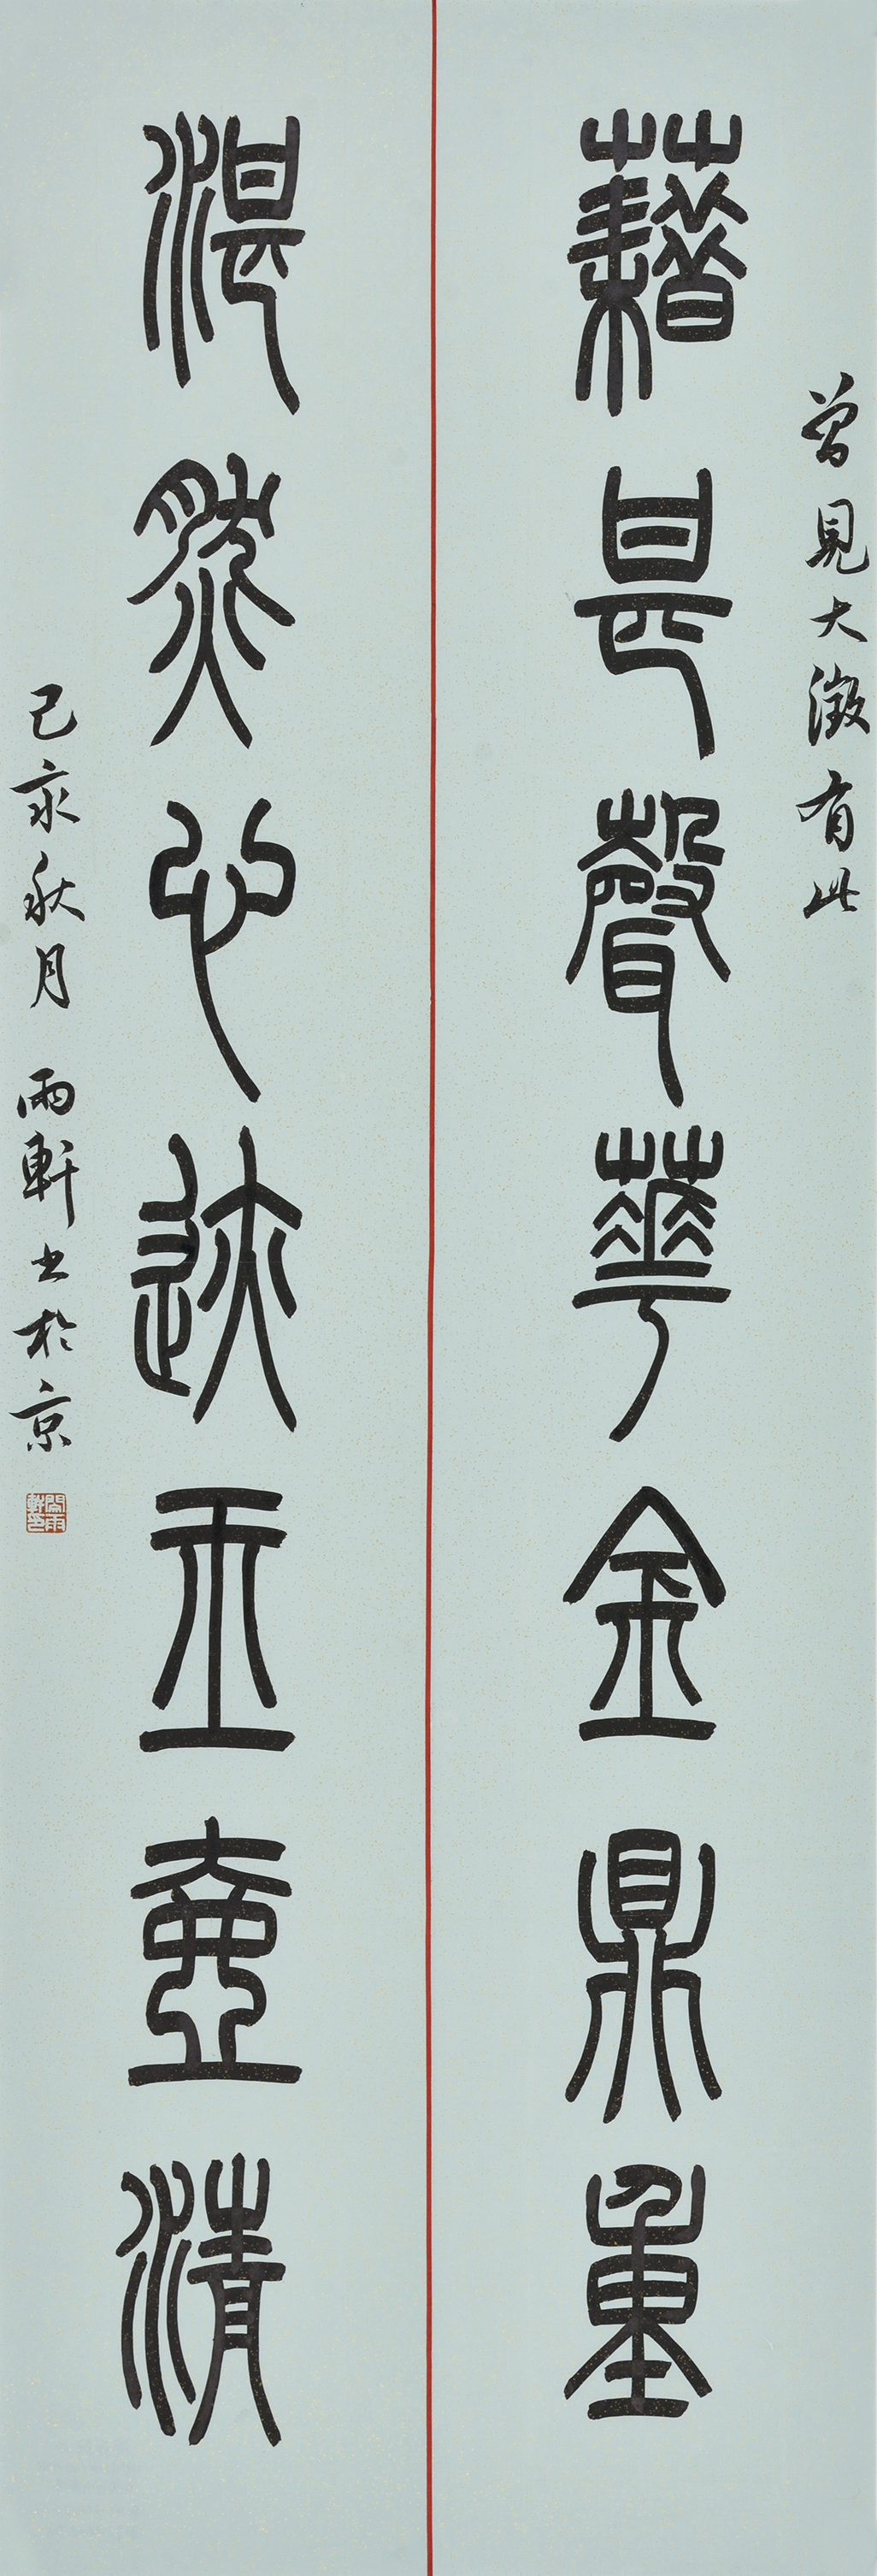 曾見大澂有此
藉甚聲華金鼎重
湛然心迹玉壺清
己亥秋月 雨軒書於京
閆雨軒印